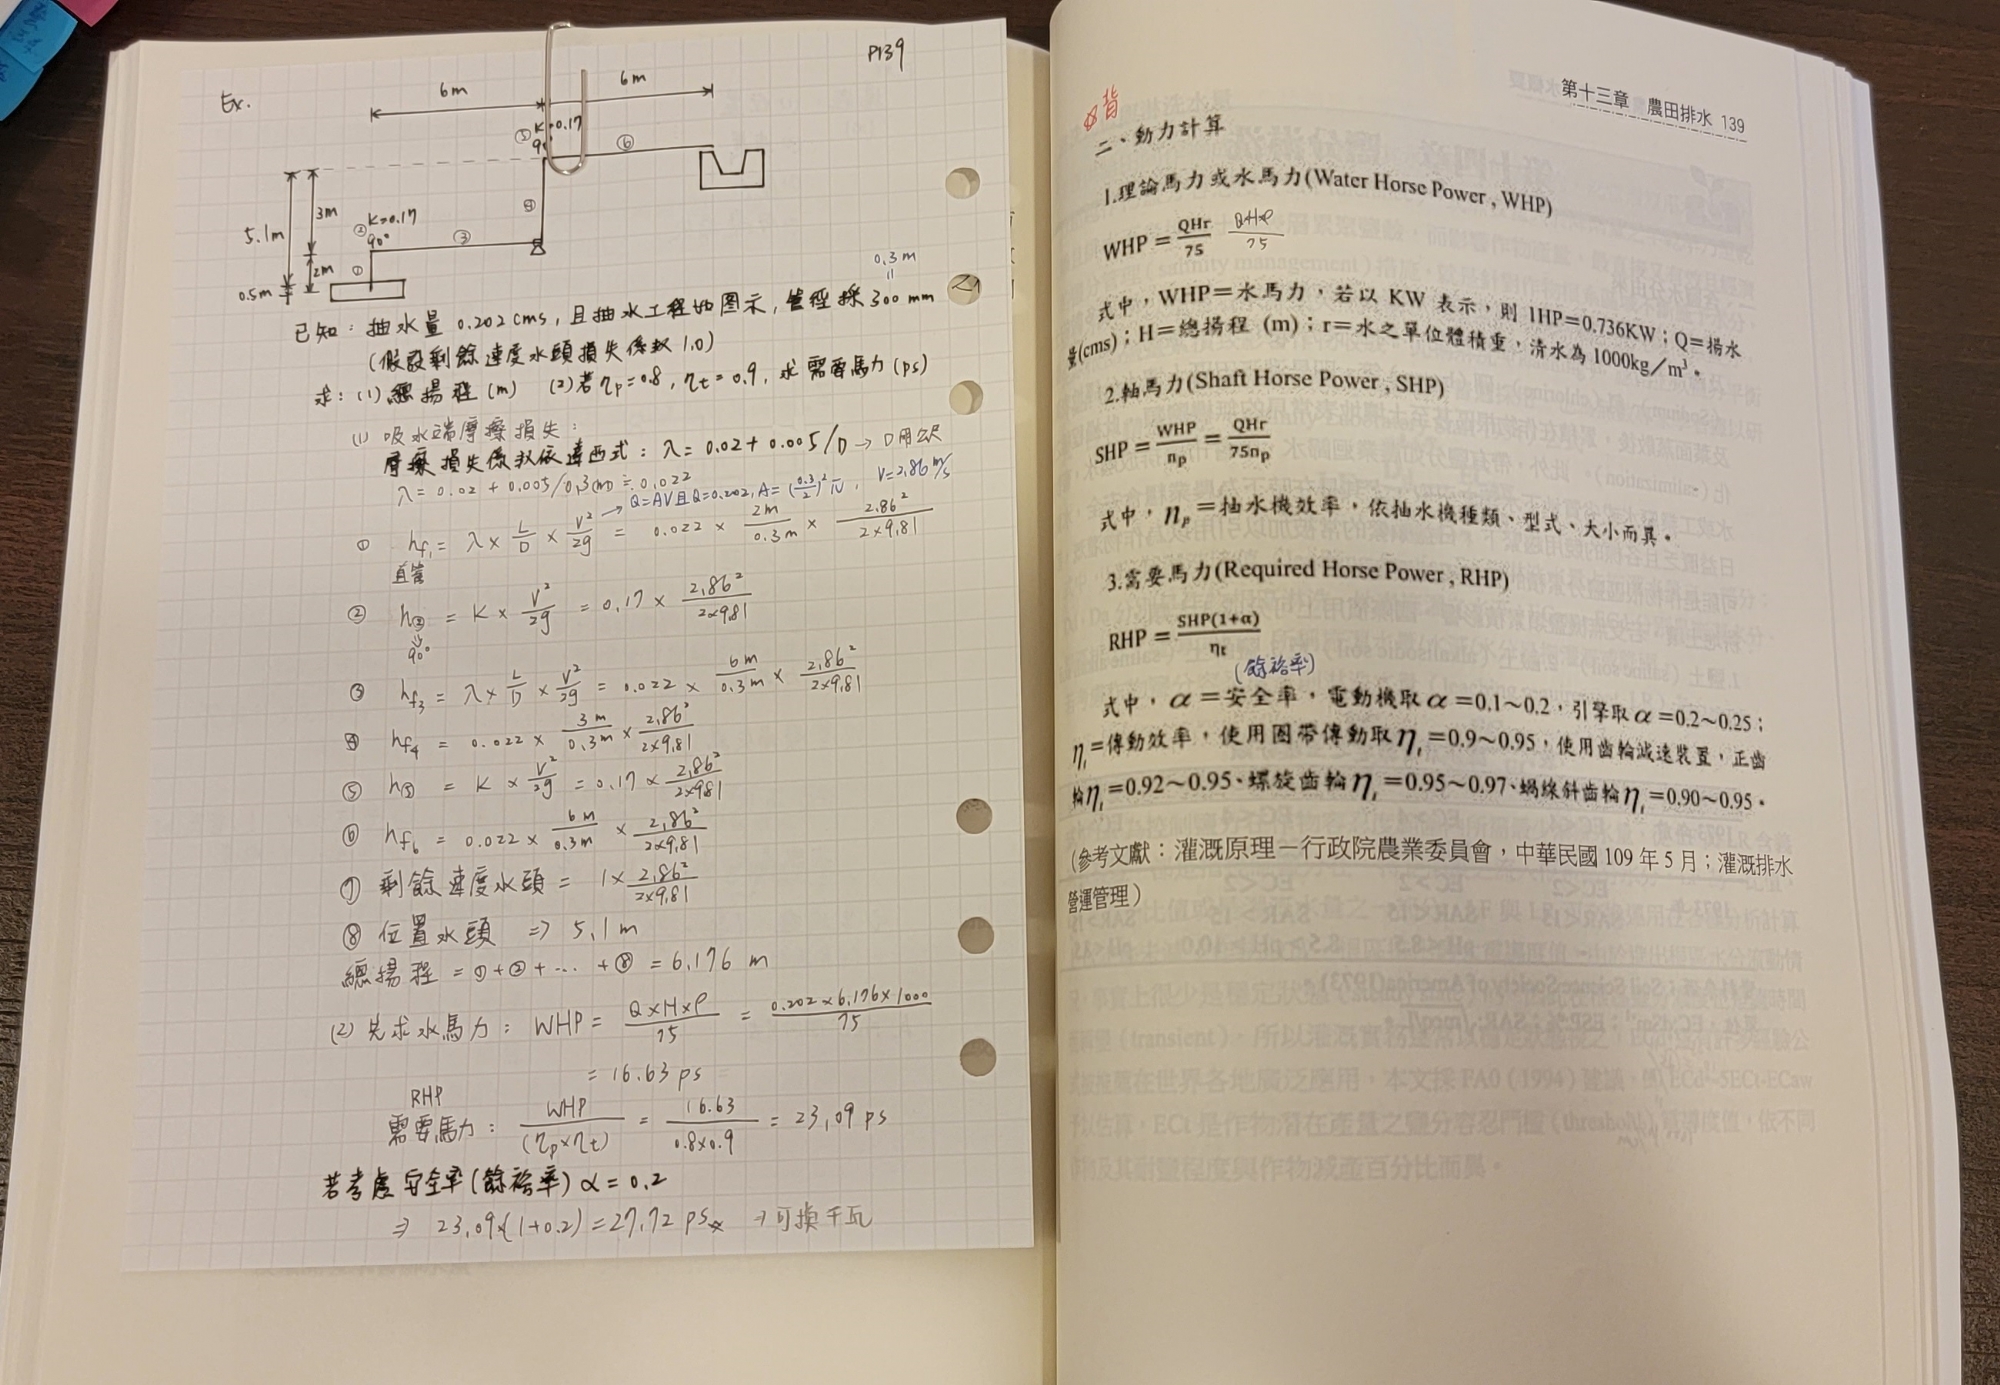 P139
Ex.
6m
6m
⑤ K=0.17
90°
⑥
5.1m
3m
② K=0.17
90°
③
④
①
2m
0.5m
0.3m
〃
已知：抽水量 0.202 cms, 且抽水工程如图示, 管徑採 300 mm
(假設剩餘速度水頭損失係数 1.0)
求：(1) 總揚程 (m) (2) 若 ηp=0.8, ηt=0.9, 求需要馬力 (ps)
(1) 吸水端摩擦損失：
摩擦損失係数依達西式：λ=0.02+0.005/D → D用公尺
λ=0.02+0.005/0.3(m) ≒ 0.022
Q=AV且Q=0.202, A=(0.3/2)²π, V=2.86 m/s
① hf₁ = λ × L/D × V²/2g = 0.022 × 2m/0.3m × 2.86²/2×9.81
直管
② h② = K × V²/2g = 0.17 × 2.86²/2×9.81
90°
③ hf₃ = λ × L/D × V²/2g = 0.022 × 6m/0.3m × 2.86²/2×9.81
④ hf₄ = 0.022 × 3m/0.3m × 2.86²/2×9.81
⑤ h⑤ = K × V²/2g = 0.17 × 2.86²/2×981
⑥ hf₆ = 0.022 × 6m/0.3m × 2.86²/2×9.81
⑦ 剩餘速度水頭 = 1× 2.86²/2×9.81
⑧ 位置水頭 ⇒ 5.1m
總揚程 = ①+②+…+⑧ = 6.176 m
(2) 先求水馬力：WHP = Q×H×ρ/75 = 0.202×6.176×1000/75
= 16.63 ps
RHP
需要馬力：WHP/(ηp×ηt) = 16.63/0.8×0.9 = 23.09 ps
若考慮安全率(餘裕率) α=0.2
⇒ 23.09×(1+0.2)=27.72 ps → 可換千瓦
第十三章 農田排水 139
背
二、動力計算
1.理論馬力或水馬力(Water Horse Power , WHP)
WHP = QHr/75 QHρ/75
式中，WHP＝水馬力，若以 KW 表示，則 1HP=0.736KW；Q＝揚水
量(cms)；H＝總揚程 (m)；r＝水之單位體積重，清水為 1000kg／m³。
2.軸馬力(Shaft Horse Power , SHP)
SHP = WHP/np = QHr/75np
式中，np＝抽水機效率，依抽水機種類、型式、大小而異。
3.需要馬力(Required Horse Power , RHP)
RHP = SHP(1+α)/ηt
(餘裕率)
式中，α＝安全率，電動機取α＝0.1～0.2，引擎取α＝0.2～0.25；
ηt＝傳動效率，使用圈帶傳動取ηt＝0.9～0.95，使用齒輪減速裝置，正齒
輪ηt＝0.92～0.95、螺旋齒輪ηt＝0.95～0.97、蝸線斜齒輪ηt＝0.90～0.95。
(參考文獻：灌溉原理－行政院農業委員會，中華民國 109 年 5 月；灌溉排水
營運管理)